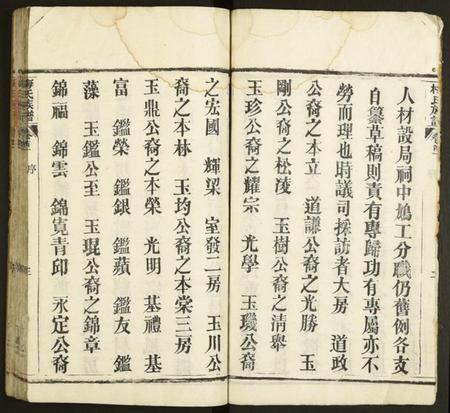 人材設局祠中鳩工分職仍舊例各支
自纂草稿則責有專歸功有專屬亦不
勞而理也時議司採訪者大房 道政
公裔之本立 道謙公裔之光勝 玉
剛公裔之松凌 玉樹公裔之清舉
玉珍公裔之耀宗 光學 玉璣公裔
之宏國 輝梁 室發二房 玉川公
裔之本林 玉均公裔之本棠三房
玉鼎公裔之本榮 光明 基禮 基
富 鑑榮 鑑銀 鑑蘋 鑑友 鑑
藻 玉鑑公至 玉琨公裔之錦章
錦福 錦雲 錦寬青印 永定公裔
氏族譜 序